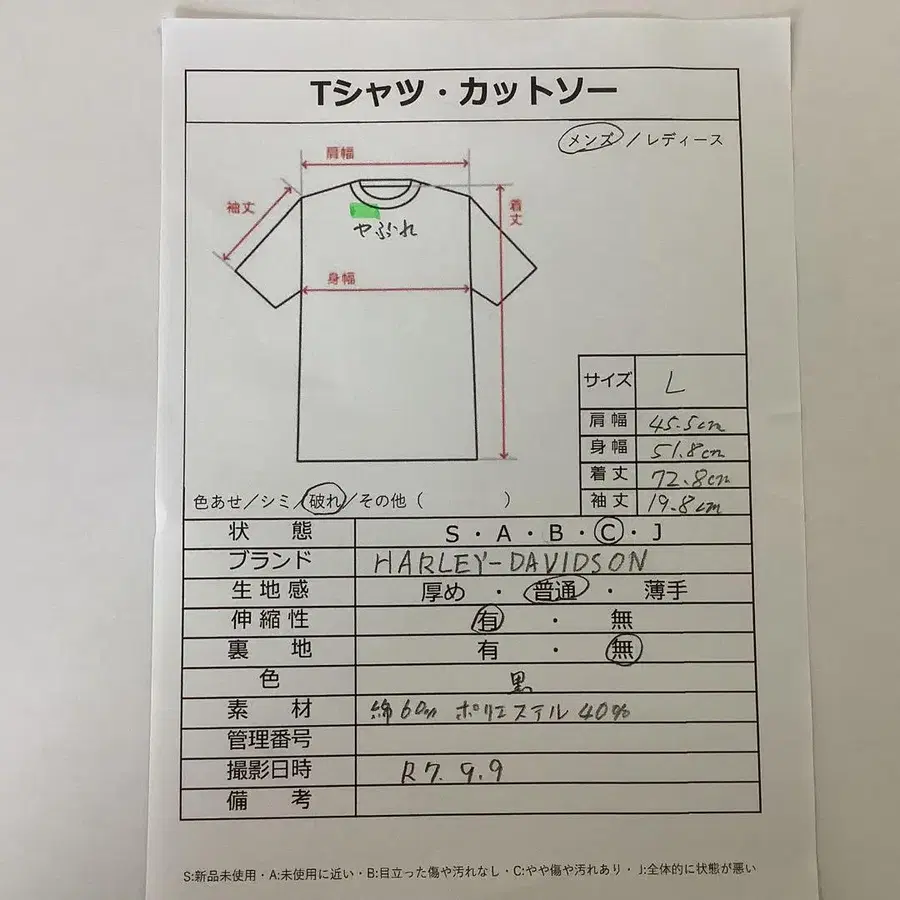 Tシャツ・カットソー
メンズ / レディース
肩幅
袖丈
着丈
やぶれ
身幅
サイズ L
肩幅 45.5cm
身幅 51.8cm
着丈 72.8cm
袖丈 19.8cm
色あせ/シミ/破れ/その他 ( )
状 態 S・A・B・C・J
ブランド HARLEY-DAVIDSON
生地感 厚め ・ 普通 ・ 薄手
伸縮性 有 ・ 無
裏 地 有 ・ 無
色 黒
素 材 綿60% ポリエステル 40%
管理番号
撮影日時 R7. 9. 9
備 考
S:新品未使用・A:未使用に近い・B:目立った傷や汚れなし・C:やや傷や汚れあり・J:全体的に状態が悪い